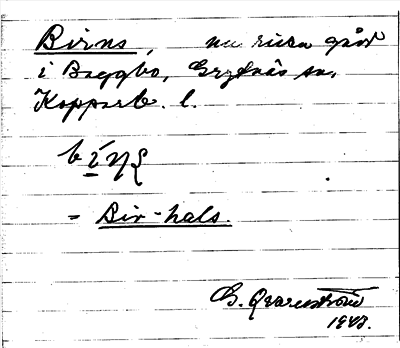 Birns, nu riven gård
i Baggbo, Grytnäs sn,
Kopparb. l.
= Bir-hals.
G. Qvarnström